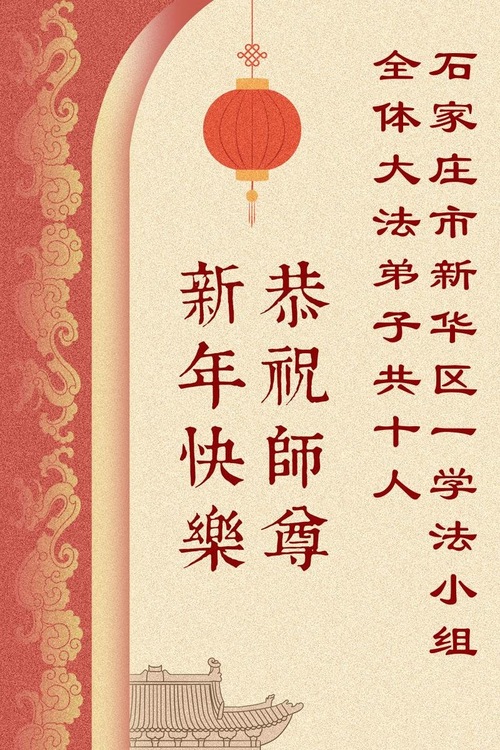 石家庄市新华区一学法小组
全体大法弟子共十人
恭祝師尊
新年快樂